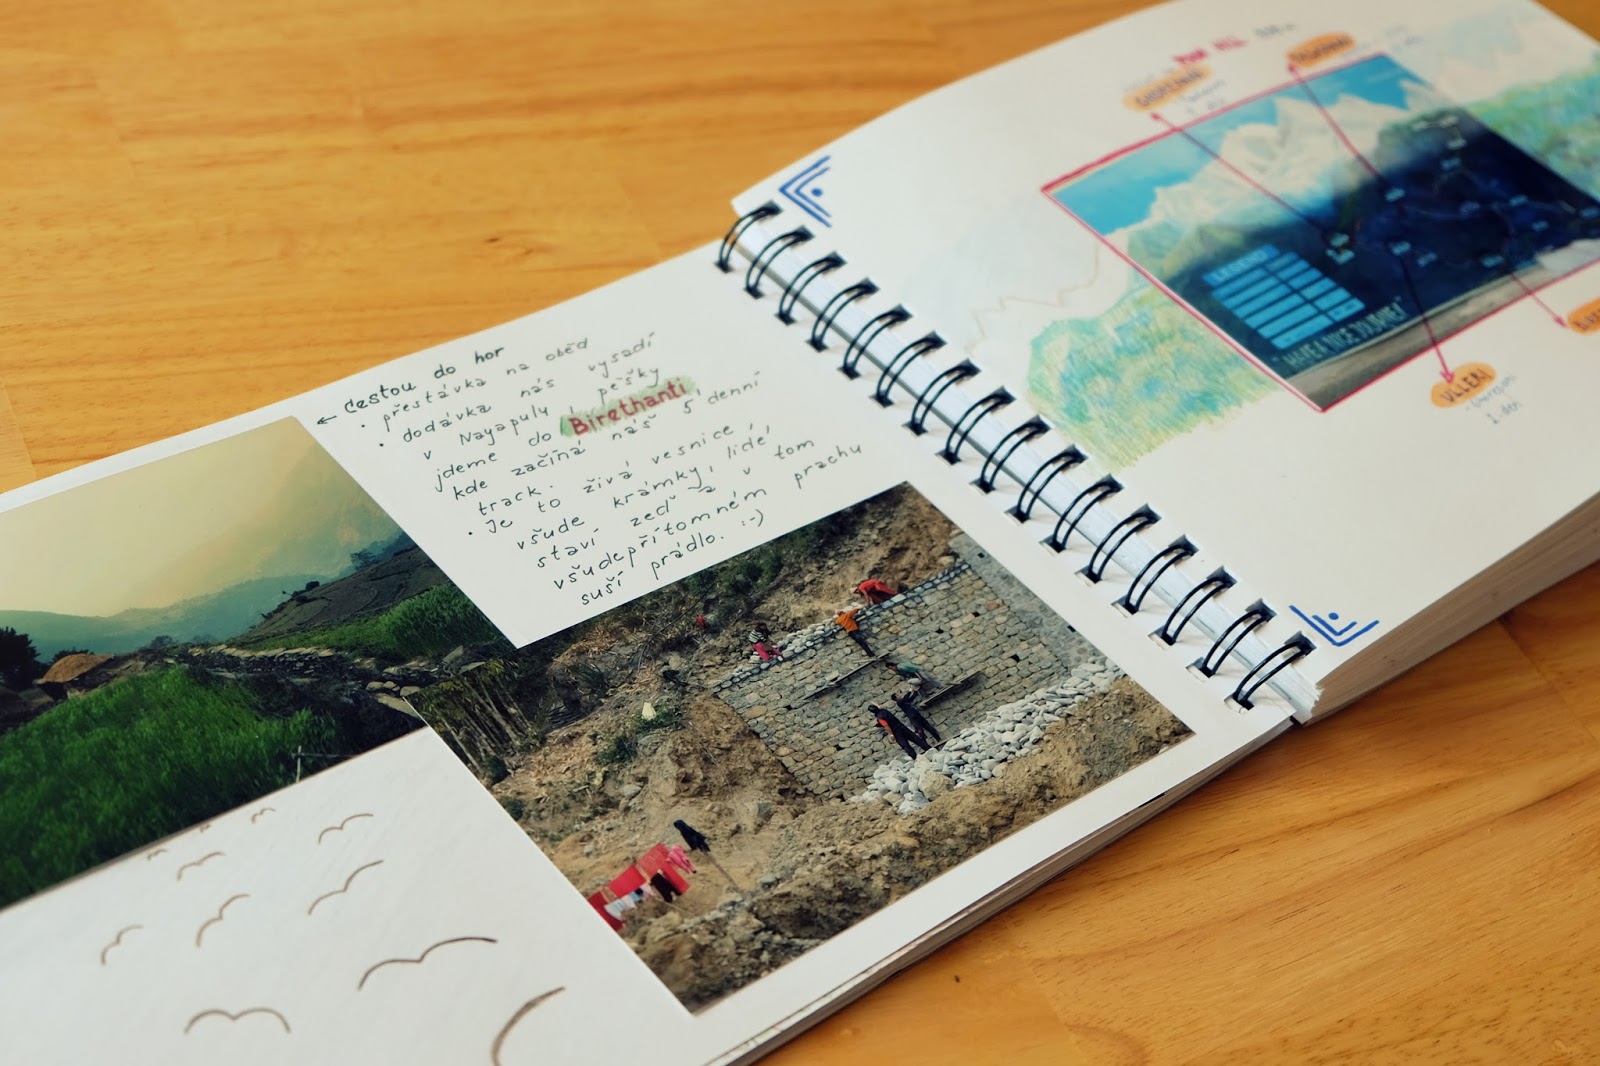 ← Cestou do hor
• přestávka na oběd
• dodávka nás vysadí
v Nayapuly i pěšky
jdeme do Birethanti
kde začíná náš 5 denní
track.
• Je to živá vesnice
všude krámky, lidé,
staví zeď a v tom
všudepřítomném prachu
suší prádlo. :-)
POON HILL
GHOREPANI
LEGEND
"HAVE A NICE JOURNEY"
ULLERI
1. den